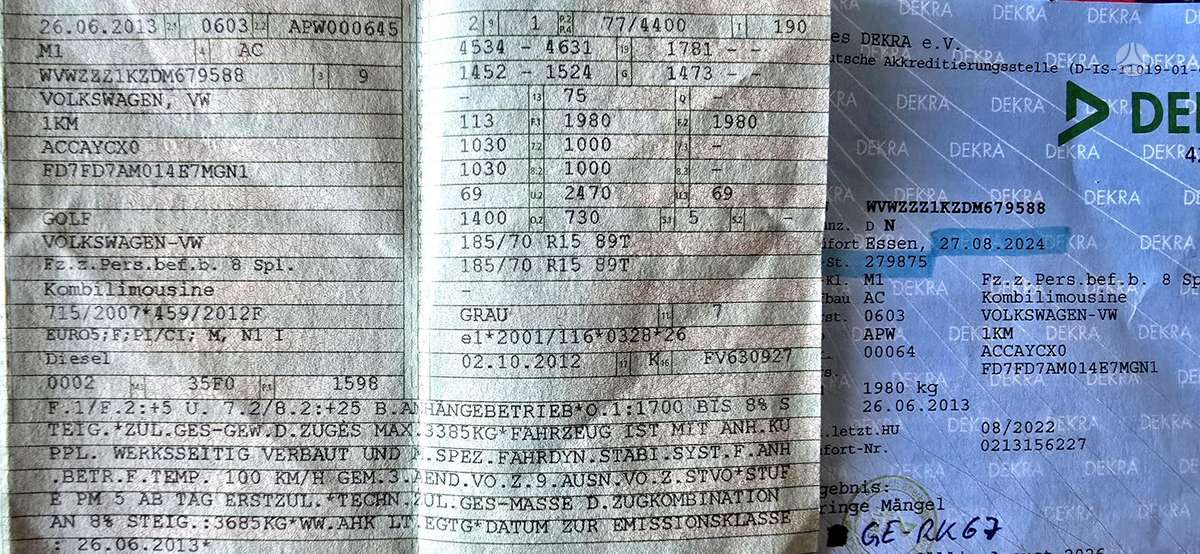 26.06.2013 2.1 0603 2.2 APW000645
M1 4 AC
WVWZZZ1KZDM679588 3 9
VOLKSWAGEN, VW
1KM
ACCAYCX0
FD7FD7AM014E7MGN1
GOLF
VOLKSWAGEN-VW
Fz.z.Pers.bef.b. 8 Spl.
Kombilimousine
715/2007*459/2012F
EURO5;F;PI/CI; M, N1 I
Diesel
0002 35F0 P.1 1598
2 9 1 P.2 P.4 77/4400 T 190
4534 - 4631 19 1781 - -
1452 - 1524 G 1473 - -
- 13 75 Q -
113 F.1 1980 F.2 1980
1030 7.2 1000 7.3 -
1030 8.2 1000 8.3 -
69 U.2 2470 U.3 69
1400 O.2 730 S.1 5 S.2 -
185/70 R15 89T
185/70 R15 89T
-
GRAU 11 7
e1*2001/116*0328*26
02.10.2012 17 K 16 FV630927
F.1/F.2:+5 U. 7.2/8.2:+25 B.ANHÄNGEBETRIEB*O.1:1700 BIS 8% S
TEIG.*ZUL.GES-GEW.D.ZUGES MAX.3385KG*FAHRZEUG IST MIT ANH.KU
PPL. WERKSSEITIG VERBAUT UND M.SPEZ.FAHRDYN.STABI.SYST.F.ANH
.BETR.F.TEMP. 100 KM/H GEM.3.AEND.VO.Z.9.AUSN.VO.Z.STVO*STUF
E PM 5 AB TAG ERSTZUL.*TECHN.ZUL.GES-MASSE D.ZUGKOMBINATION
AN 8% STEIG.:3685KG*WW.AHK LT.EGTG*DATUM ZUR EMISSIONSKLASSE
: 26.06.2013*
DEKRA DEKRA DEKRA
es DEKRA e.V.
utsche Akkreditierungsstelle (D-IS-11019-01-
DEK
WVWZZZ1KZDM679588
nz. D N
ifort Essen, 27.08.2024
St. 279875
kl. M1 Fz.z.Pers.bef.b. 8 Sp
bau AC Kombilimousine
st. 0603 VOLKSWAGEN-VW
APW 1KM
00064 ACCAYCX0
s. FD7FD7AM014E7MGN1
1980 kg
26.06.2013
.letzt.HU 08/2022
ifort-Nr. 0213156227
gebnis:
ringe Mängel
GE-RK67